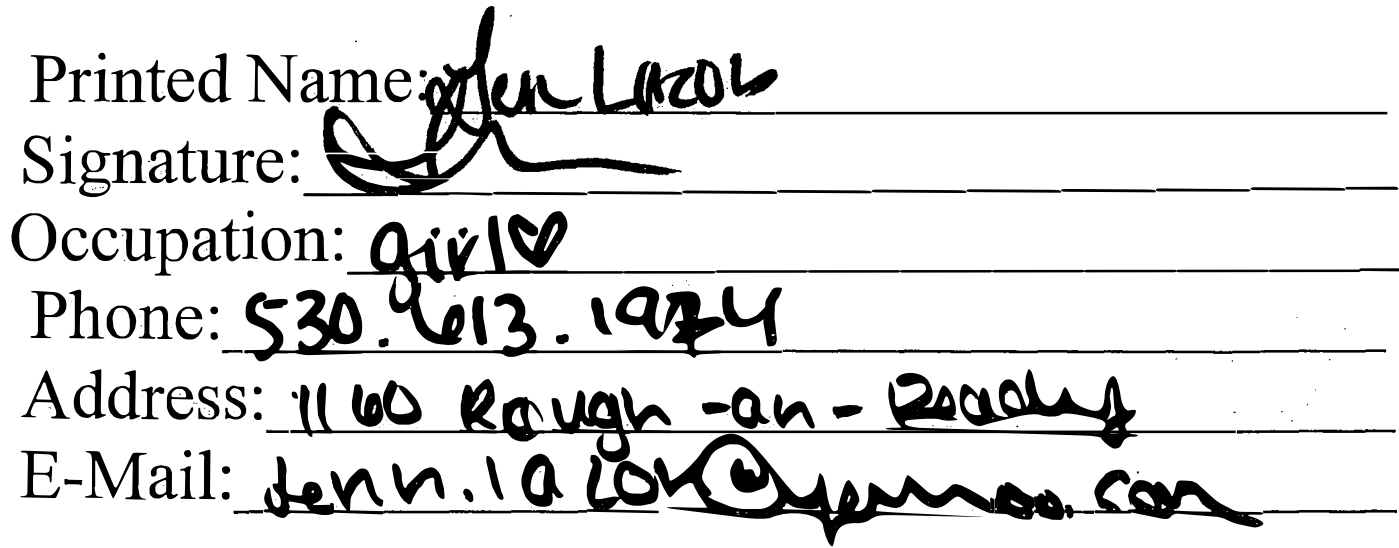 Printed Name: Jen Lazob
Signature:
Occupation: girl♡
Phone: 530.613.1974
Address: 1160 Rough-an-Ready
E-Mail: @yahoo.com